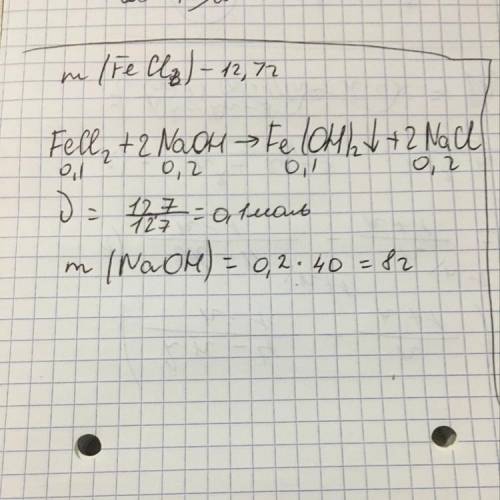 m (FeCl₂) - 12,7г
FeCl₂ + 2NaOH → Fe(OH)₂↓ + 2NaCl
0,1 0,2 0,1 0,2
ν = 12,7/127 = 0,1 моль
m (NaOH) = 0,2 · 40 = 8г